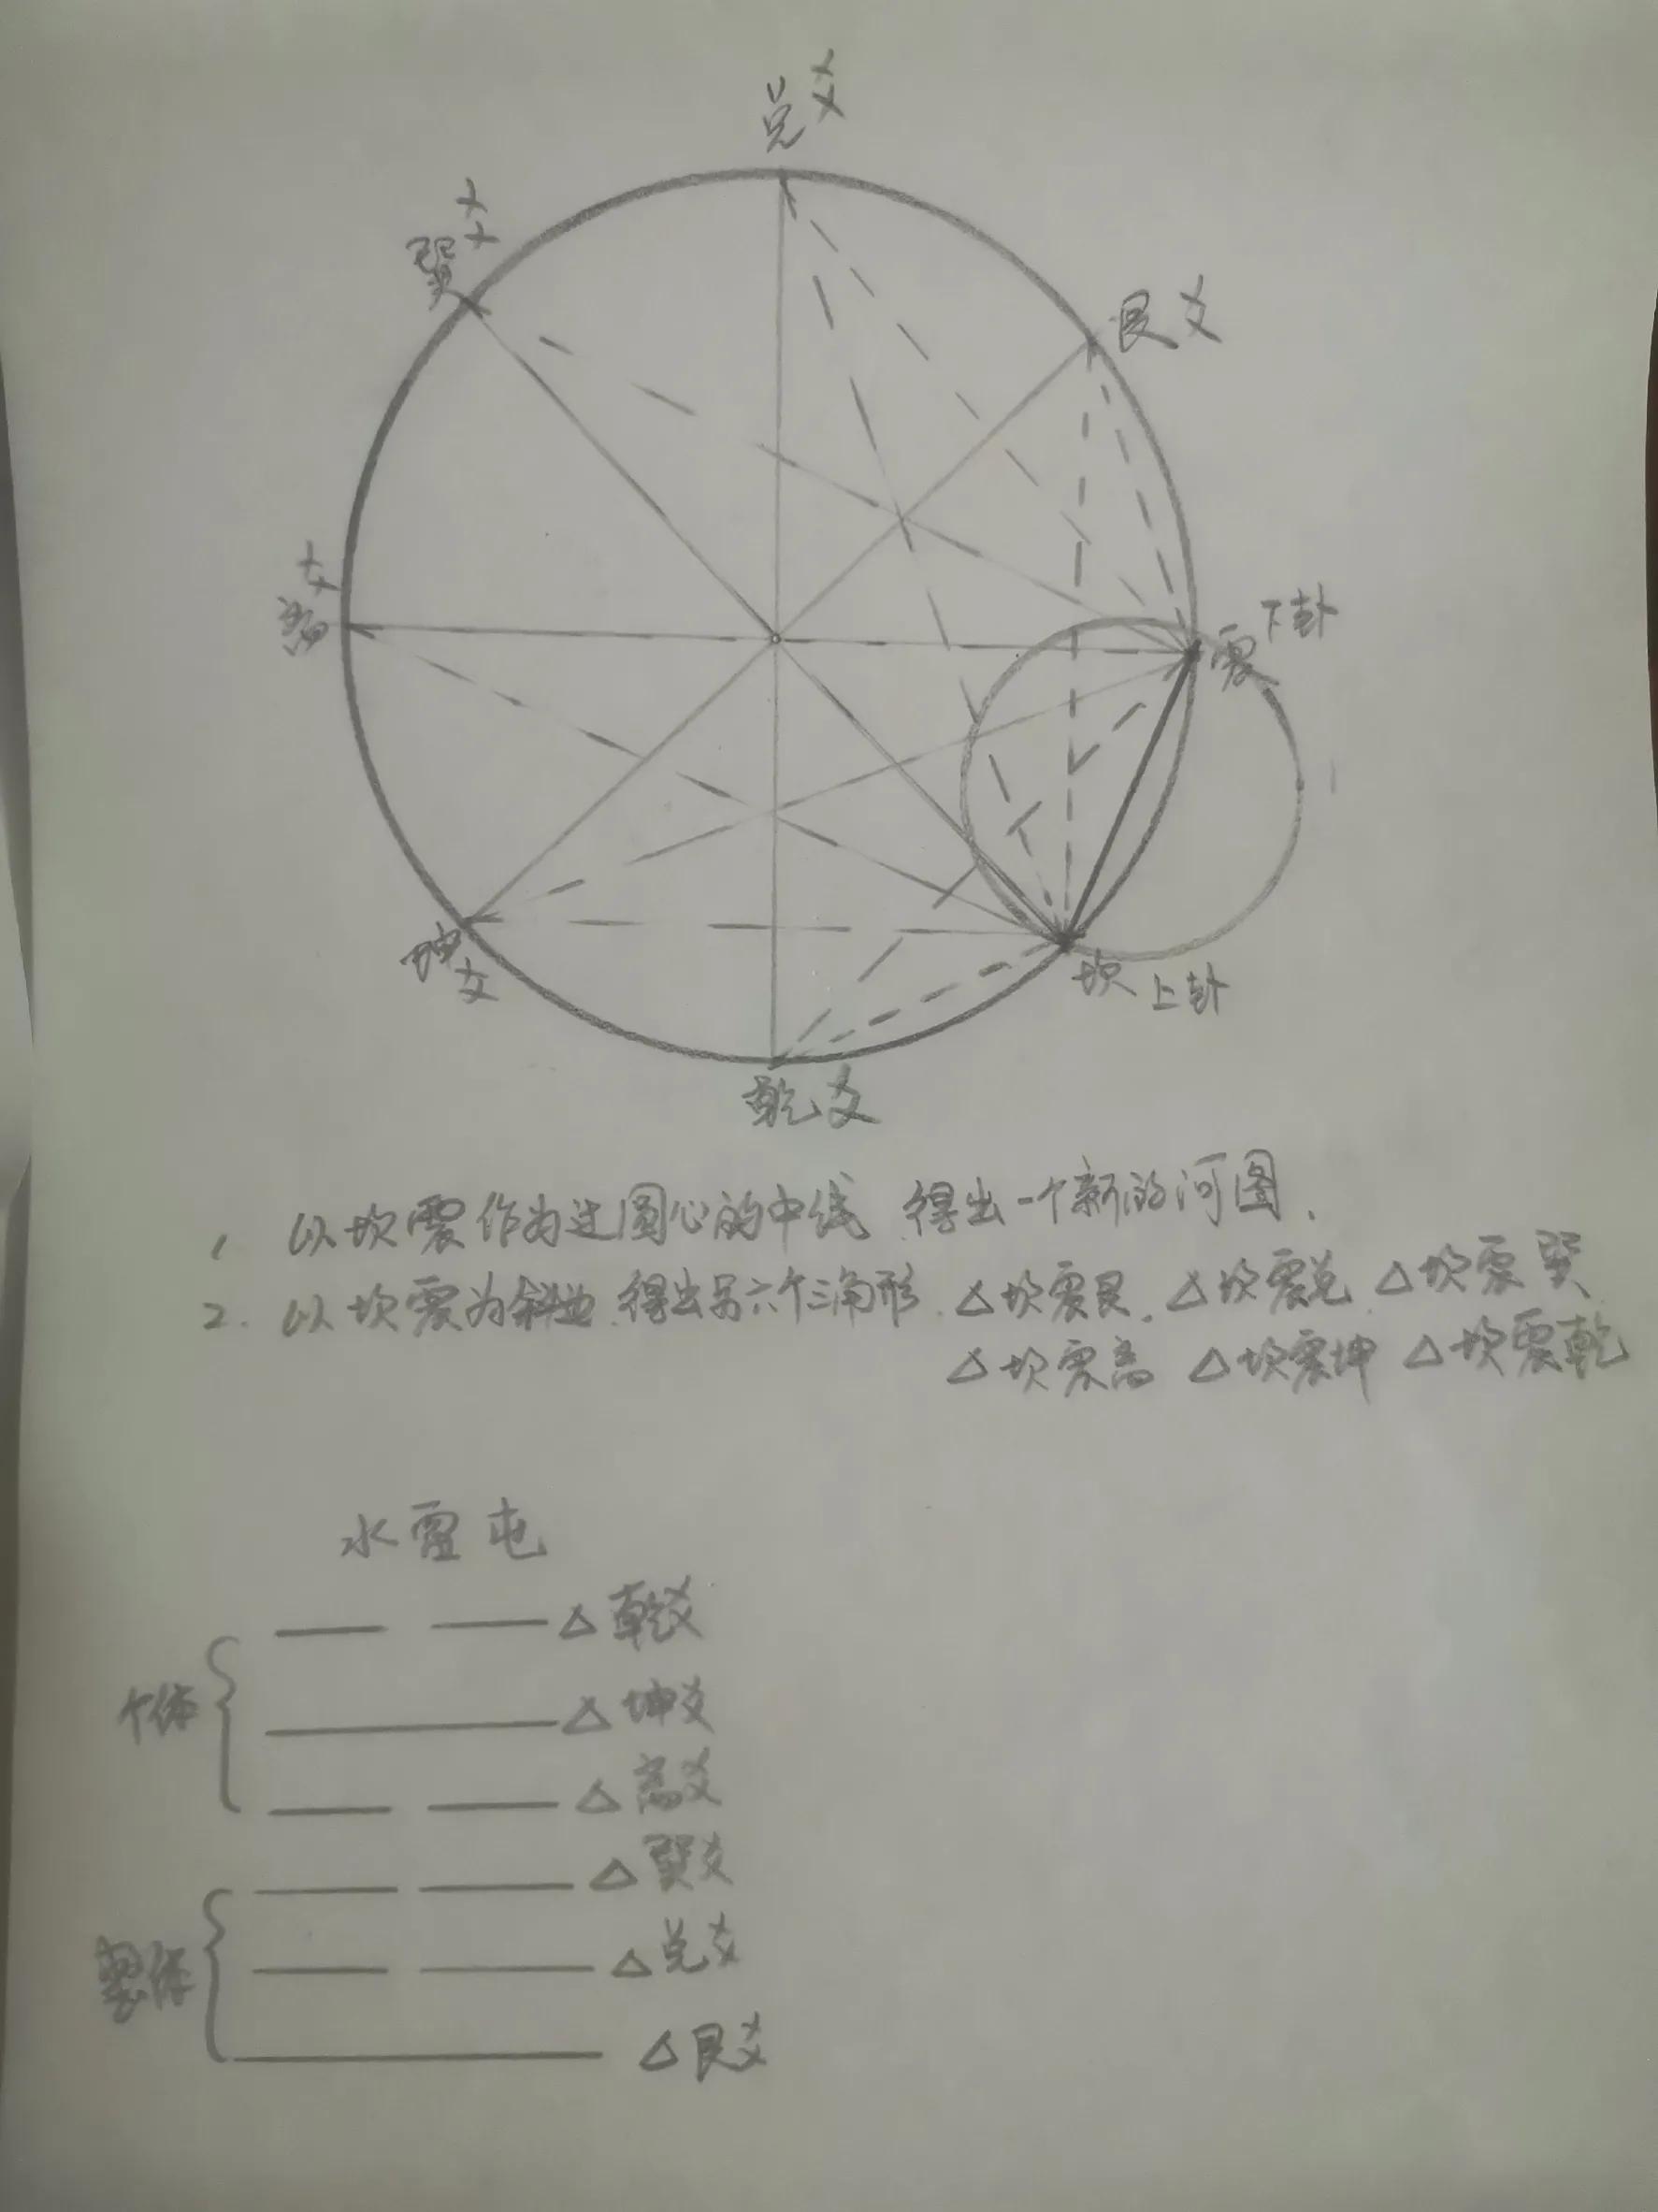 兑爻
巽爻
艮爻
离爻
震下卦
坤爻
坎上卦
乾爻
1 以坎震作为过圆心的中线.得出一个新的河图.
2. 以坎震为斜边.得出另六个三角形.△坎震艮.△坎震兑.△坎震巽
△坎震离 △坎震坤 △坎震乾
水雷屯
△乾爻
个体 △坤爻
△离爻
△巽爻
整体 △兑爻
△艮爻